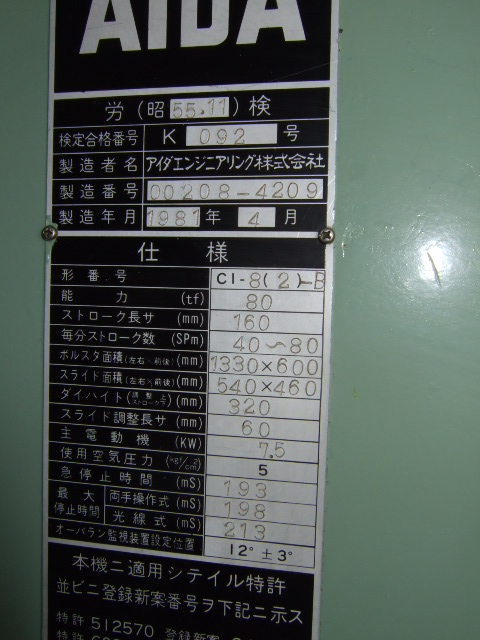 AIDA
労(昭55.11)検
検定合格番号 K 092 号
製造者名 アイダエンジニアリング株式会社
製造番号 00208-4209
製造年月 1981年 4月
仕様
形番号 C1-8(2)-B
能力 (tf) 80
ストローク長サ (mm) 160
毎分ストローク数 (SPm) 40~80
ボルスタ面積(左右×前後)(mm) 1330×600
スライド面積(左右×前後)(mm) 540×460
ダイハイト(調整上 ストローク下)(mm) 320
スライド調整長サ (mm) 60
主電動機 (KW) 7.5
使用空気圧力 (kg/cm²) 5
急停止時間 (mS) 193
最大停止時間 両手操作式 (mS) 198
光線式 (mS) 213
オーバラン監視装置設定位置 12°±3°
本機ニ適用シテイル特許
並ビニ登録新案番号ヲ下記ニ示ス
特許 512570 登録新案
特許